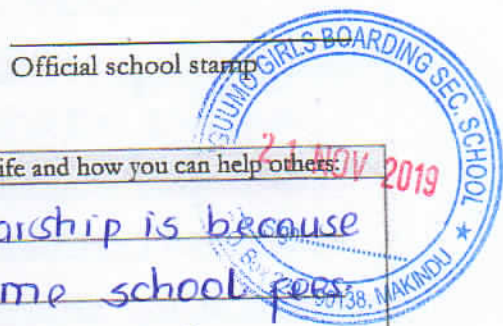 Official school stamp
GUUMO GIRLS BOARDING SEC. SCHOOL
21 NOV 2019
90138, MAKINDU
life and how you can help others:
arship is because
me school fees.